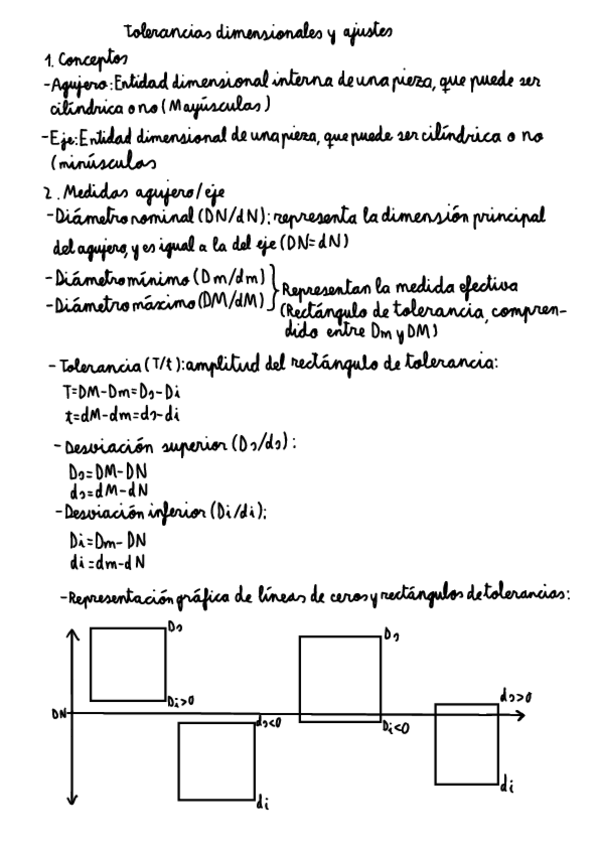 Tolerancias dimensionales y ajustes
1. Conceptos
-Agujero: Entidad dimensional interna de una pieza, que puede ser
cilíndrica o no (Mayúsculas)
-Eje: Entidad dimensional de una pieza, que puede ser cilíndrica o no
(minúsculas
2. Medidas agujero/eje
-Diámetro nominal (DN/dN): representa la dimensión principal
del agujero, y es igual a la del eje (DN=dN)
-Diámetro mínimo (Dm/dm)
-Diámetro máximo (DM/dM)
Representan la medida efectiva
(Rectángulo de tolerancia, compren-
dido entre Dm y DM)
-Tolerancia (T/t): amplitud del rectángulo de tolerancia:
T=DM-Dm=Ds-Di
t=dM-dm=ds-di
-Desviación superior (Ds/ds):
Ds=DM-DN
ds=dM-dN
-Desviación inferior (Di/di):
Di=Dm-DN
di=dm-dN
-Representación gráfica de líneas de ceros y rectángulos de tolerancias:
Ds
Ds
Di>0
ds>0
DN
ds<0
Di<0
di
di